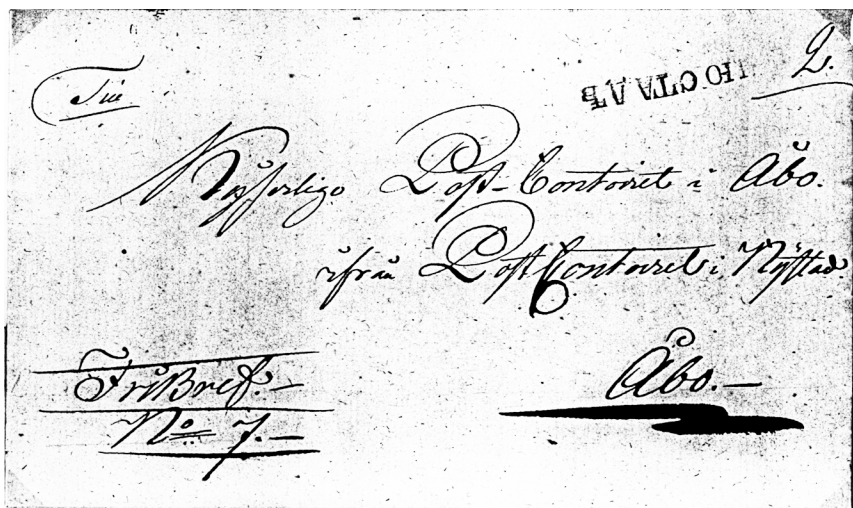 2.
НЮСТАДЪ
Till
Kejserliga Post-Contoiret i Åbo.
ifrån Post Contoiret i Nÿstad.
Fri Bref.—
Åbo.—
No 7.—